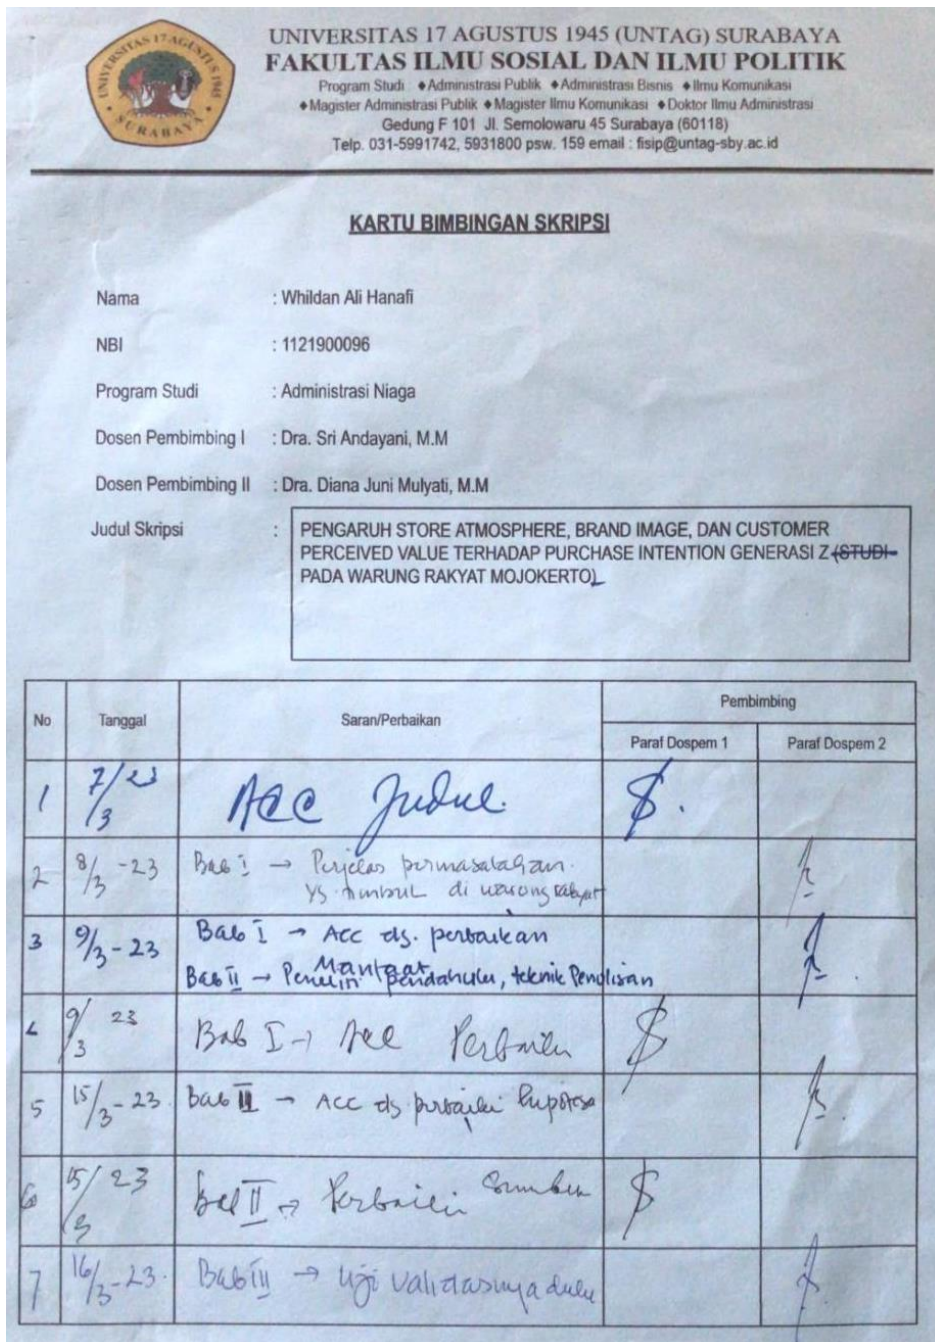 UNIVERSITAS 17 AGUSTUS 1945
SURABAYA
UNIVERSITAS 17 AGUSTUS 1945 (UNTAG) SURABAYA
FAKULTAS ILMU SOSIAL DAN ILMU POLITIK
Program Studi : ◆Administrasi Publik ◆Administrasi Bisnis ◆Ilmu Komunikasi
◆Magister Administrasi Publik ◆Magister Ilmu Komunikasi ◆Doktor Ilmu Administrasi
Gedung F 101 Jl. Semolowaru 45 Surabaya (60118)
Telp. 031-5991742, 5931800 psw. 159 email : fisip@untag-sby.ac.id
KARTU BIMBINGAN SKRIPSI
Nama : Whildan Ali Hanafi
NBI : 1121900096
Program Studi : Administrasi Niaga
Dosen Pembimbing I : Dra. Sri Andayani, M.M
Dosen Pembimbing II : Dra. Diana Juni Mulyati, M.M
Judul Skripsi : PENGARUH STORE ATMOSPHERE, BRAND IMAGE, DAN CUSTOMER
PERCEIVED VALUE TERHADAP PURCHASE INTENTION GENERASI Z (STUDI
PADA WARUNG RAKYAT MOJOKERTO)
No Tanggal Saran/Perbaikan Pembimbing
Paraf Dospem 1 Paraf Dospem 2
1 7/3 23 Acc Judul.
2 8/3 -23 Bab I → Perjelas permasalahan
yg timbul di warung rakyat
3 9/3 -23 Bab I → Acc dg. perbaikan
Manfaat
Bab II → Penelin terdahulu, teknik Penulisan
4 9/3 23 Bab I → Acc Perbaiki
5 15/3 -23 Bab II → Acc dg perbaiki hipotesa
6 15/3 23 Bab II → Perbaiki Sumber
7 16/3 -23. Bab III → Uji validasinya dulu